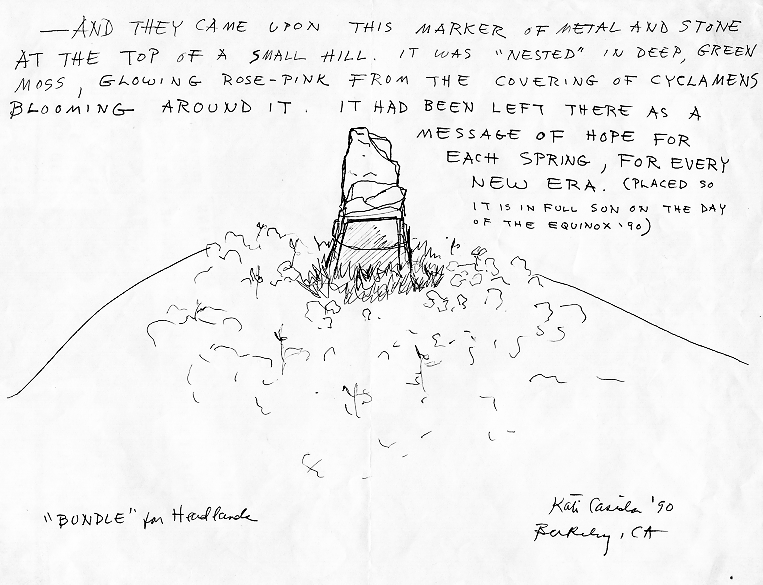 —AND THEY CAME UPON THIS MARKER OF METAL AND STONE
AT THE TOP OF A SMALL HILL. IT WAS "NESTED" IN DEEP, GREEN
MOSS, GLOWING ROSE-PINK FROM THE COVERING OF CYCLAMENS
BLOOMING AROUND IT. IT HAD BEEN LEFT THERE AS A
MESSAGE OF HOPE FOR
EACH SPRING, FOR EVERY
NEW ERA. (PLACED SO
IT IS IN FULL SUN ON THE DAY
OF THE EQUINOX '90)
"BUNDLE" for Headlands
Kati Casida '90
Berkeley, CA